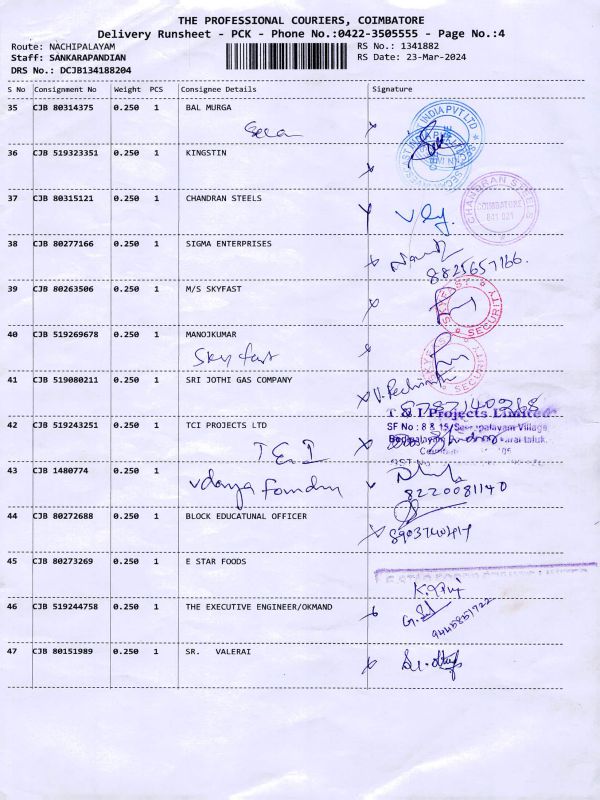 THE PROFESSIONAL COURIERS, COIMBATORE
Delivery Runsheet - PCK - Phone No.:0422-3505555 - Page No.:4
Route: NACHIPALAYAM RS No.: 1341882
Staff: SANKARAPANDIAN RS Date: 23-Mar-2024
DRS No.: DCJB134188204
S No Consignment No Weight PCS Consignee Details Signature
35 CJB 80314375 0.250 1 BAL MURGA
36 CJB 519323351 0.250 1 KINGSTIN
37 CJB 80315121 0.250 1 CHANDRAN STEELS
CHANDRAN STEELS
COIMBATORE
641 021
38 CJB 80277166 0.250 1 SIGMA ENTERPRISES
8825657166.
39 CJB 80263506 0.250 1 M/S SKYFAST
SECURITY
40 CJB 519269678 0.250 1 MANOJKUMAR
Sky fast
SECURITY
41 CJB 519080211 0.250 1 SRI JOTHI GAS COMPANY
T & I Projects Limited
42 CJB 519243251 0.250 1 TCI PROJECTS LTD
SF No : 8 & 15/
Village
T & I
43 CJB 1480774 0.250 1
8220081140
44 CJB 80272688 0.250 1 BLOCK EDUCATUNAL OFFICER
45 CJB 80273269 0.250 1 E STAR FOODS
46 CJB 519244758 0.250 1 THE EXECUTIVE ENGINEER/OKMAND
47 CJB 80151989 0.250 1 SR. VALERAI